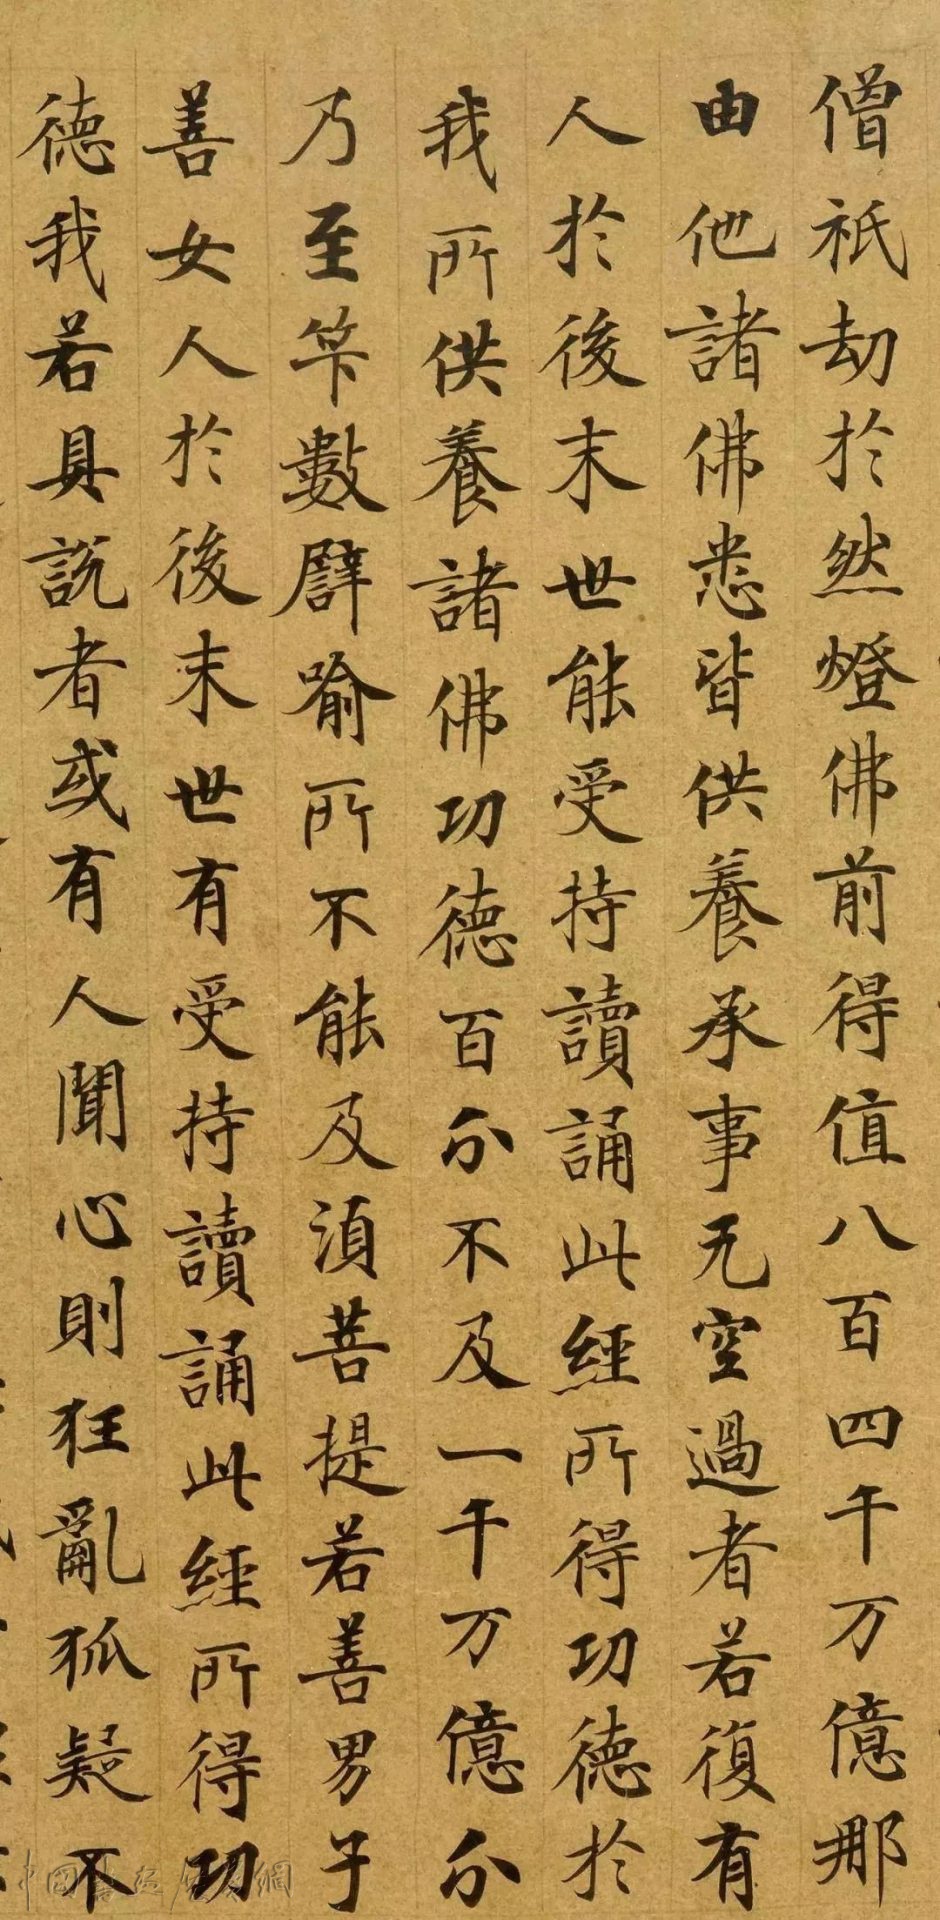 僧祇劫於然燈佛前得值八百四千万億那
由他諸佛悉皆供養承事无空過者若復有
人於後末世能受持讀誦此經所得功德於
我所供養諸佛功德百分不及一千万億分
乃至笇數譬喻所不能及須菩提若善男子
善女人於後末世有受持讀誦此經所得功
德我若具說者或有人聞心則狂亂狐疑不